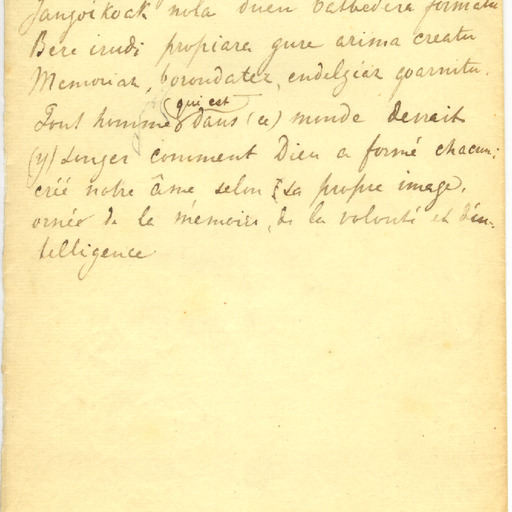 Jangoikoak nola duen batbedera formatu
Bere irudi propiara gure arima creatu
Memoriaz, borondatez, endelgiaz goarnitu.
(qui est
Tout homme dans (ce) monde devrait
(y) songer comment Dieu a formé chacun;
créé notre âme selon sa propre image,
ornée de la mémoire, de la volonté et d'in-
telligence